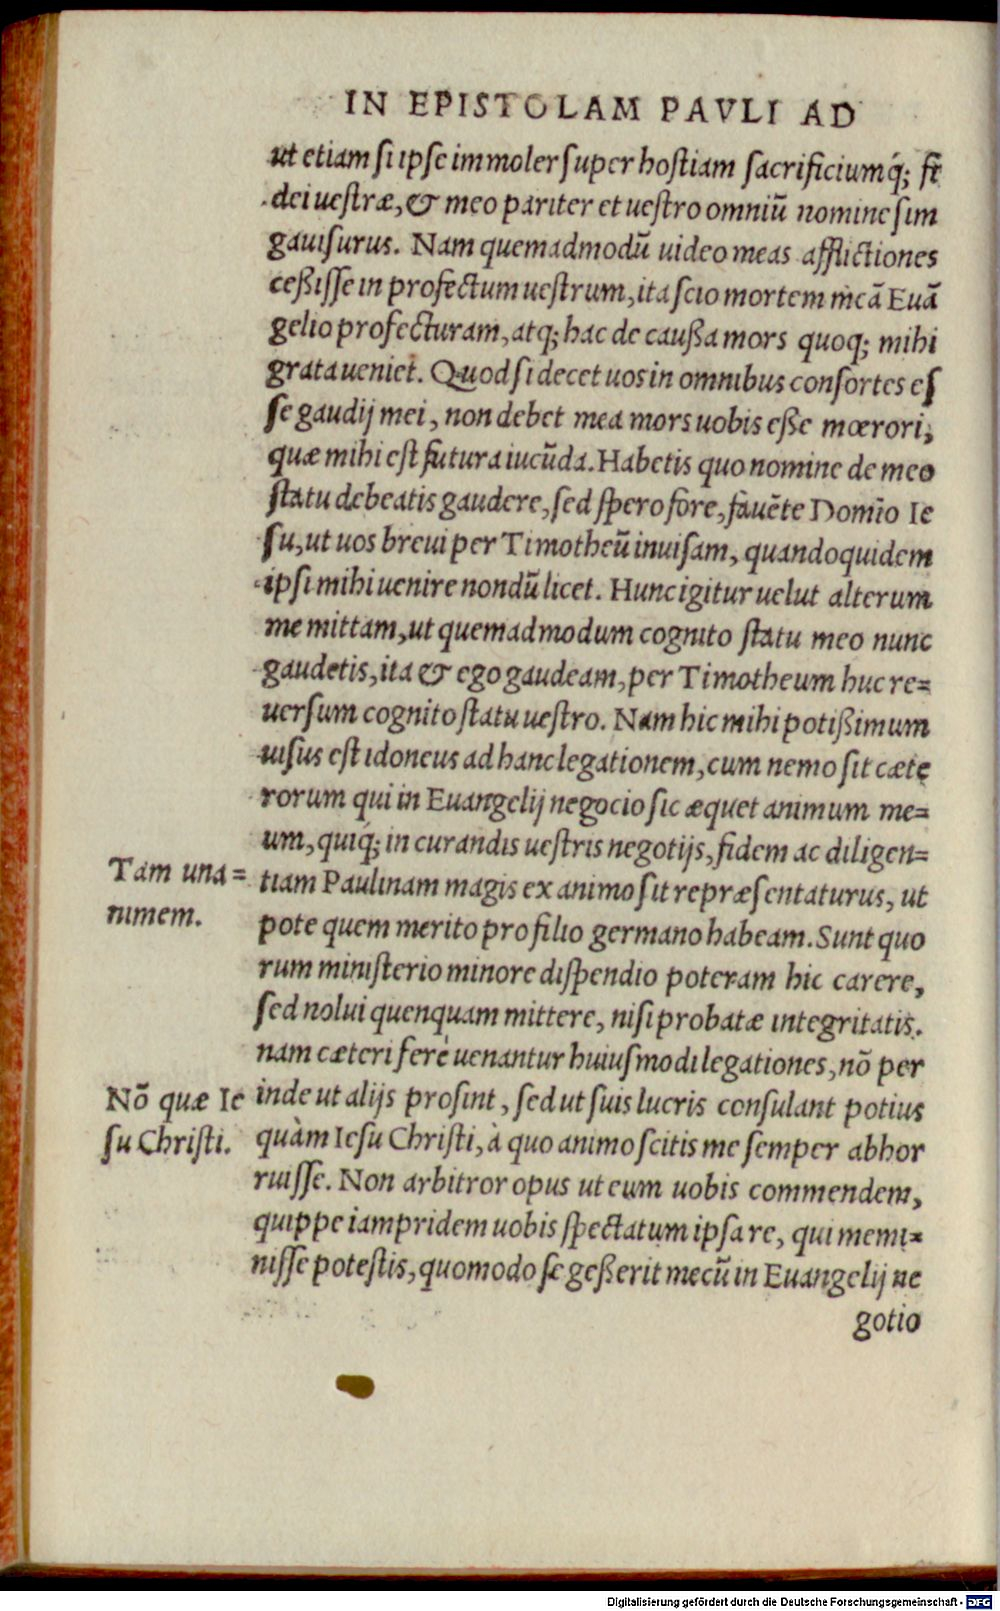 IN EPISTOLAM PAVLI AD
ut etiam si ipse immoler super hostiam sacrificiumq́; fi
dei uestræ, & meo pariter et uestro omniū nomine sim
gauisurus. Nam quemadmodū uideo meas afflictiones
ceßisse in profectum uestrum, ita scio mortem meā Euā
gelio profecturam, atq; hac de caußa mors quoq; mihi
grata ueniet. Quod si decet uos in omnibus consortes es
se gaudij mei, non debet mea mors uobis eße mœrori,
quæ mihi est futura iucūda. Habetis quo nomine de meo
statu debeatis gaudere, sed spero fore, fauēte Domīo Ie
su, ut uos breui per Timotheū inuisam, quandoquidem
ipsi mihi uenire nondū licet. Hunc igitur uelut alterum
me mittam, ut quemadmodum cognito statu meo nunc
gaudetis, ita & ego gaudeam, per Timotheum huc re=
uersum cognito statu uestro. Nam hic mihi potißimum
uisus est idoneus ad hanc legationem, cum nemo sit cæte
rorum qui in Euangelij negocio sic æquet animum me=
um, quiq́; in curandis uestris negotijs, fidem ac diligen=
Tam una=
nimem.
tiam Paulinam magis ex animo sit repræsentaturus, ut
pote quem merito pro filio germano habeam. Sunt quo
rum ministerio minore dispendio poteram hic carere,
sed nolui quenquam mittere, nisi probatæ integritatis.
nam cæteri ferè uenantur huiusmodi legationes, nō per
Nō quæ Ie
su Christi.
inde ut alijs prosint, sed ut suis lucris consulant potius
quàm Iesu Christi, à quo animo scitis me semper abhor
ruisse. Non arbitror opus ut eum uobis commendem,
quippe iampridem uobis spectatum ipsa re, qui memi=
nisse potestis, quomodo se geßerit mecū in Euangelij ne
gotio
Digitalisierung gefördert durch die Deutsche Forschungsgemeinschaft - DFG